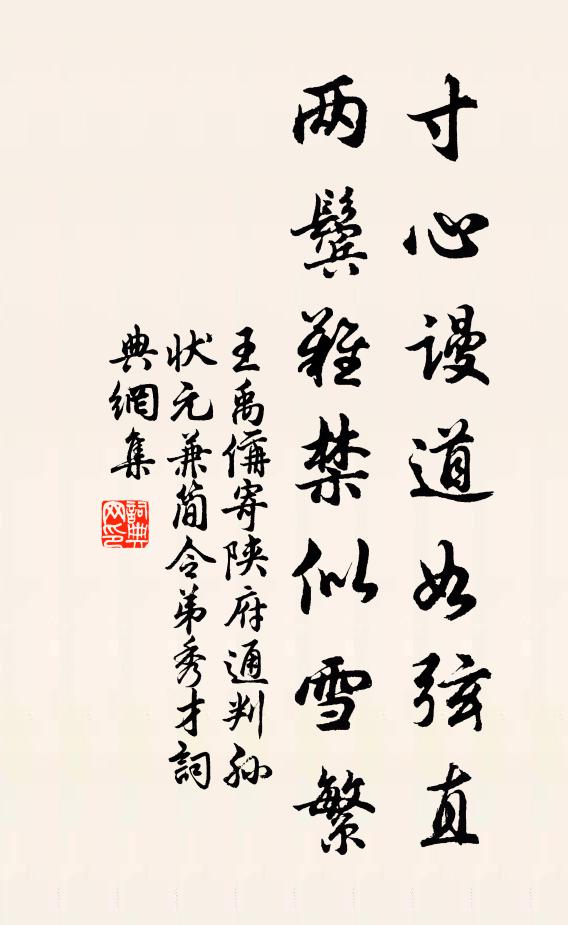 寸心谩道如弦直
两鬓難禁似雪繁
王禹偁寄陕府通判孙
状元兼简令弟秀才詞
典網集
詞典网印